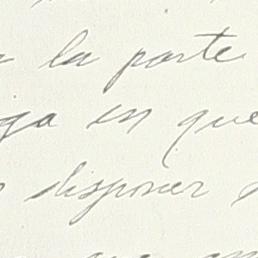 a la parte
ga en que
disponer